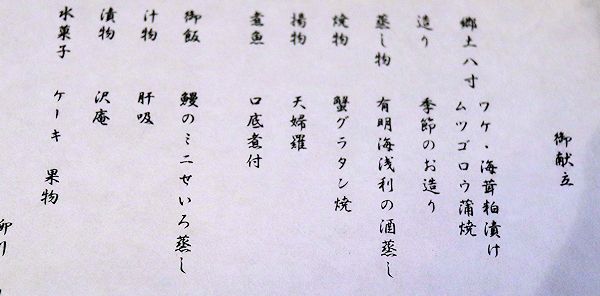 御献立
ワケ・海茸粕漬け
郷土八寸 ムツゴロウ蒲焼
造り 季節のお造り
蒸し物 有明海浅利の酒蒸し
焼物 蟹グラタン焼
揚物 天婦羅
煮魚 口底煮付
御飯 鰻のミニせいろ蒸し
汁物 肝吸
漬物 沢庵
水菓子 ケーキ 果物
柳川